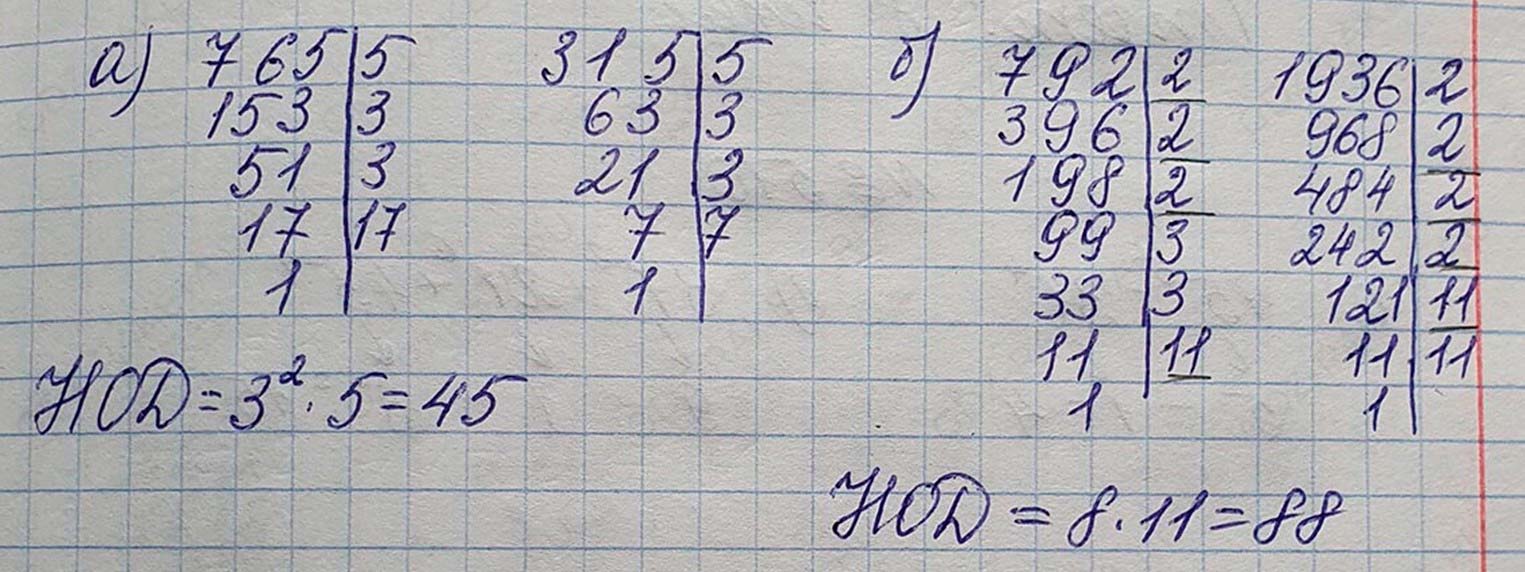 а) 765|5 315|5 б) 792|2 1936|2
153|3 63|3 396|2 968|2
51|3 21|3 198|2 484|2
17|17 7|7 99|3 242|2
1| 1| 33|3 121|11
11|11 11|11
1 1
НОД = 3² · 5 = 45
НОД = 8 · 11 = 88